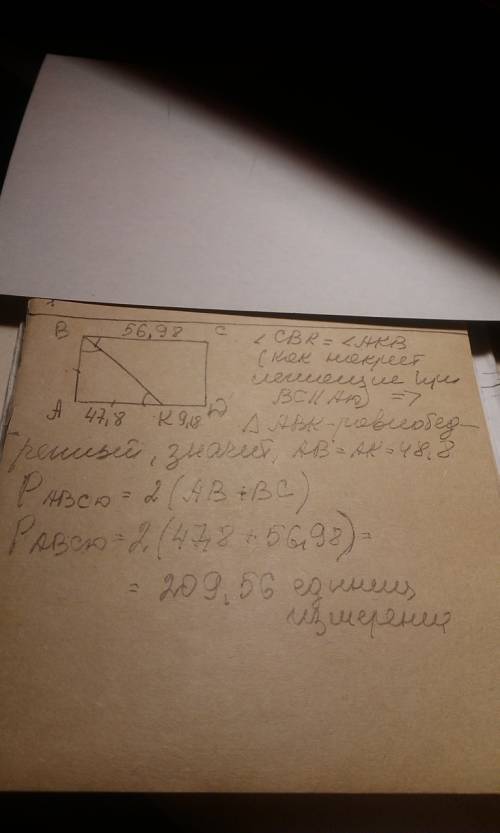 B 56,98 C
∠CBK = ∠AKB
(как накрест
лежащие при
BC||AD) =>
A 47,8 K 9,18 D
△ ABK-равнобед-
ренный, значит, AB = AK = 48,8
P ABCD = 2(AB + BC)
P ABCD = 2(47,8 + 56,98) =
= 209,56 единиц
измерения